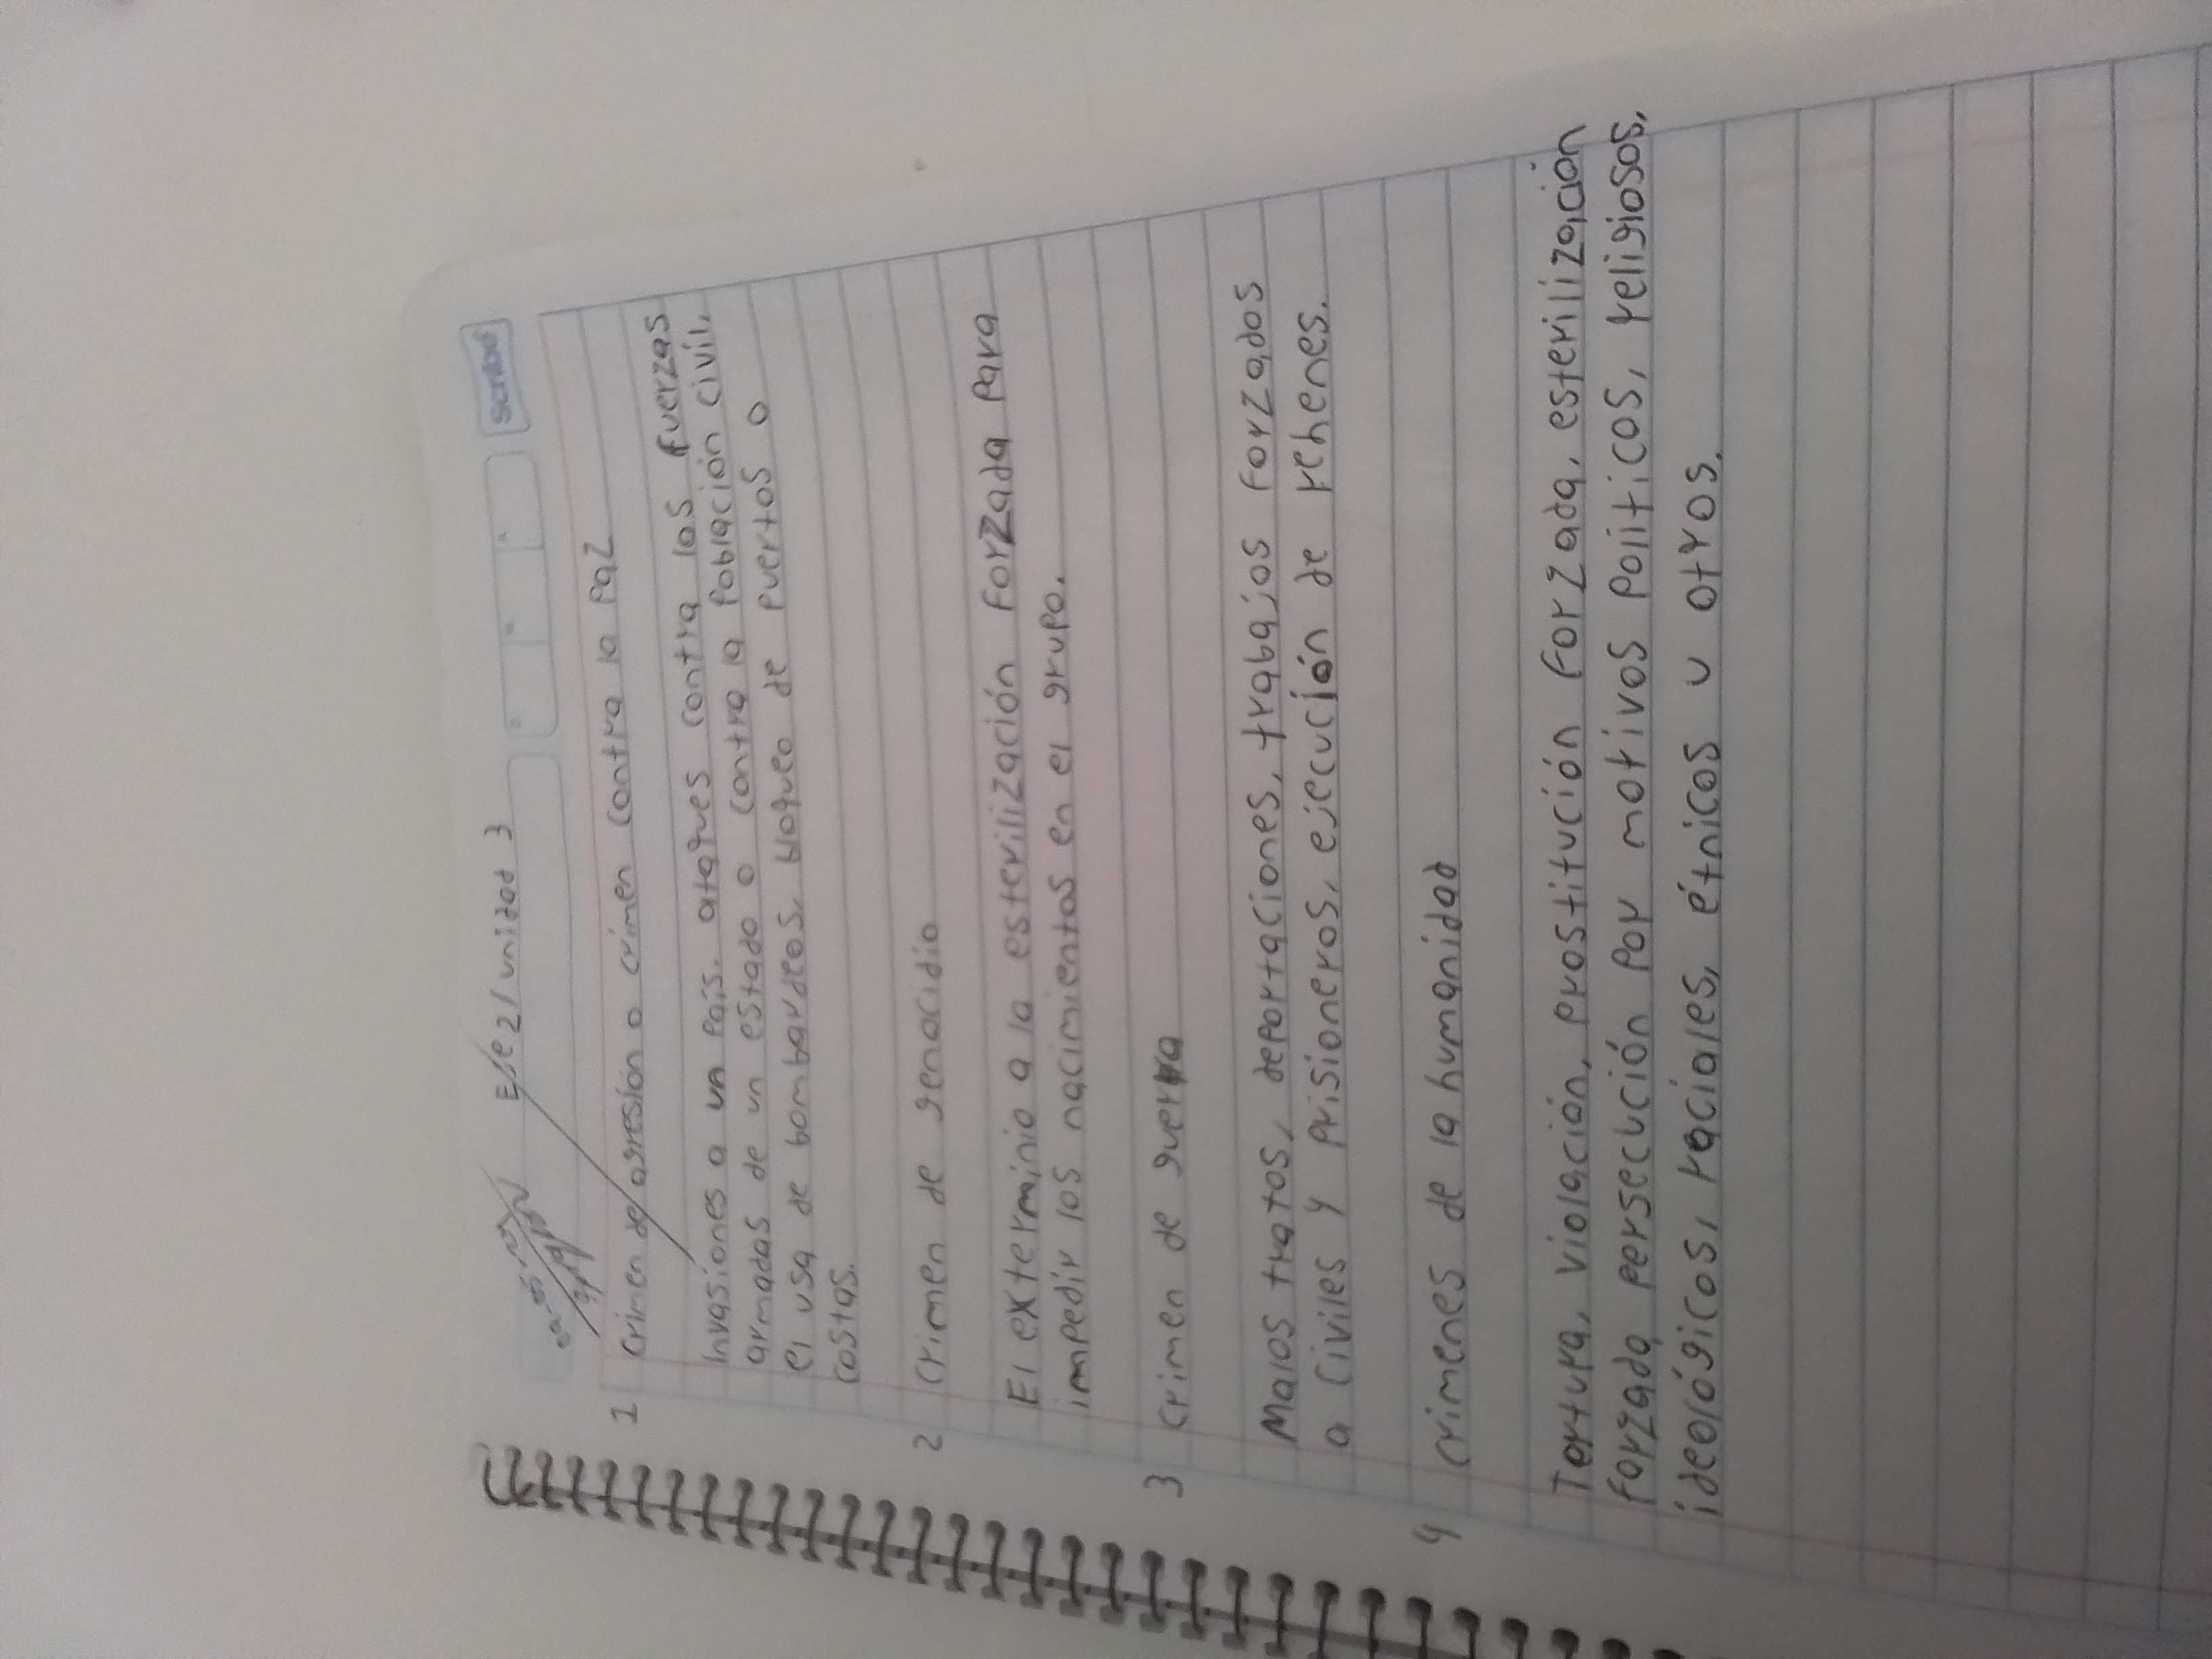 Eje 2/unidad 3
scribe
1 Crimen de agresión o crimen contra la paz
Invasiones a un país, ataques contra las fuerzas
armadas de un estado o contra la población civil,
el usa de bombardeos, bloqueo de puertos o
costas.
2 Crimen de genocidio
El exterminio a la esterilización forzada para
impedir los nacimientos en el grupo.
3 Crimen de guerra
Malos tratos, deportaciones, trabajos forzados
a civiles y prisioneros, ejecución de rehenes.
4 Crimenes de la humanidad
Tortura, violación, prostitución forzada, esterilización
forzada, persecución por motivos politicos, religiosos,
ideológicos, raciales, étnicos u otros.